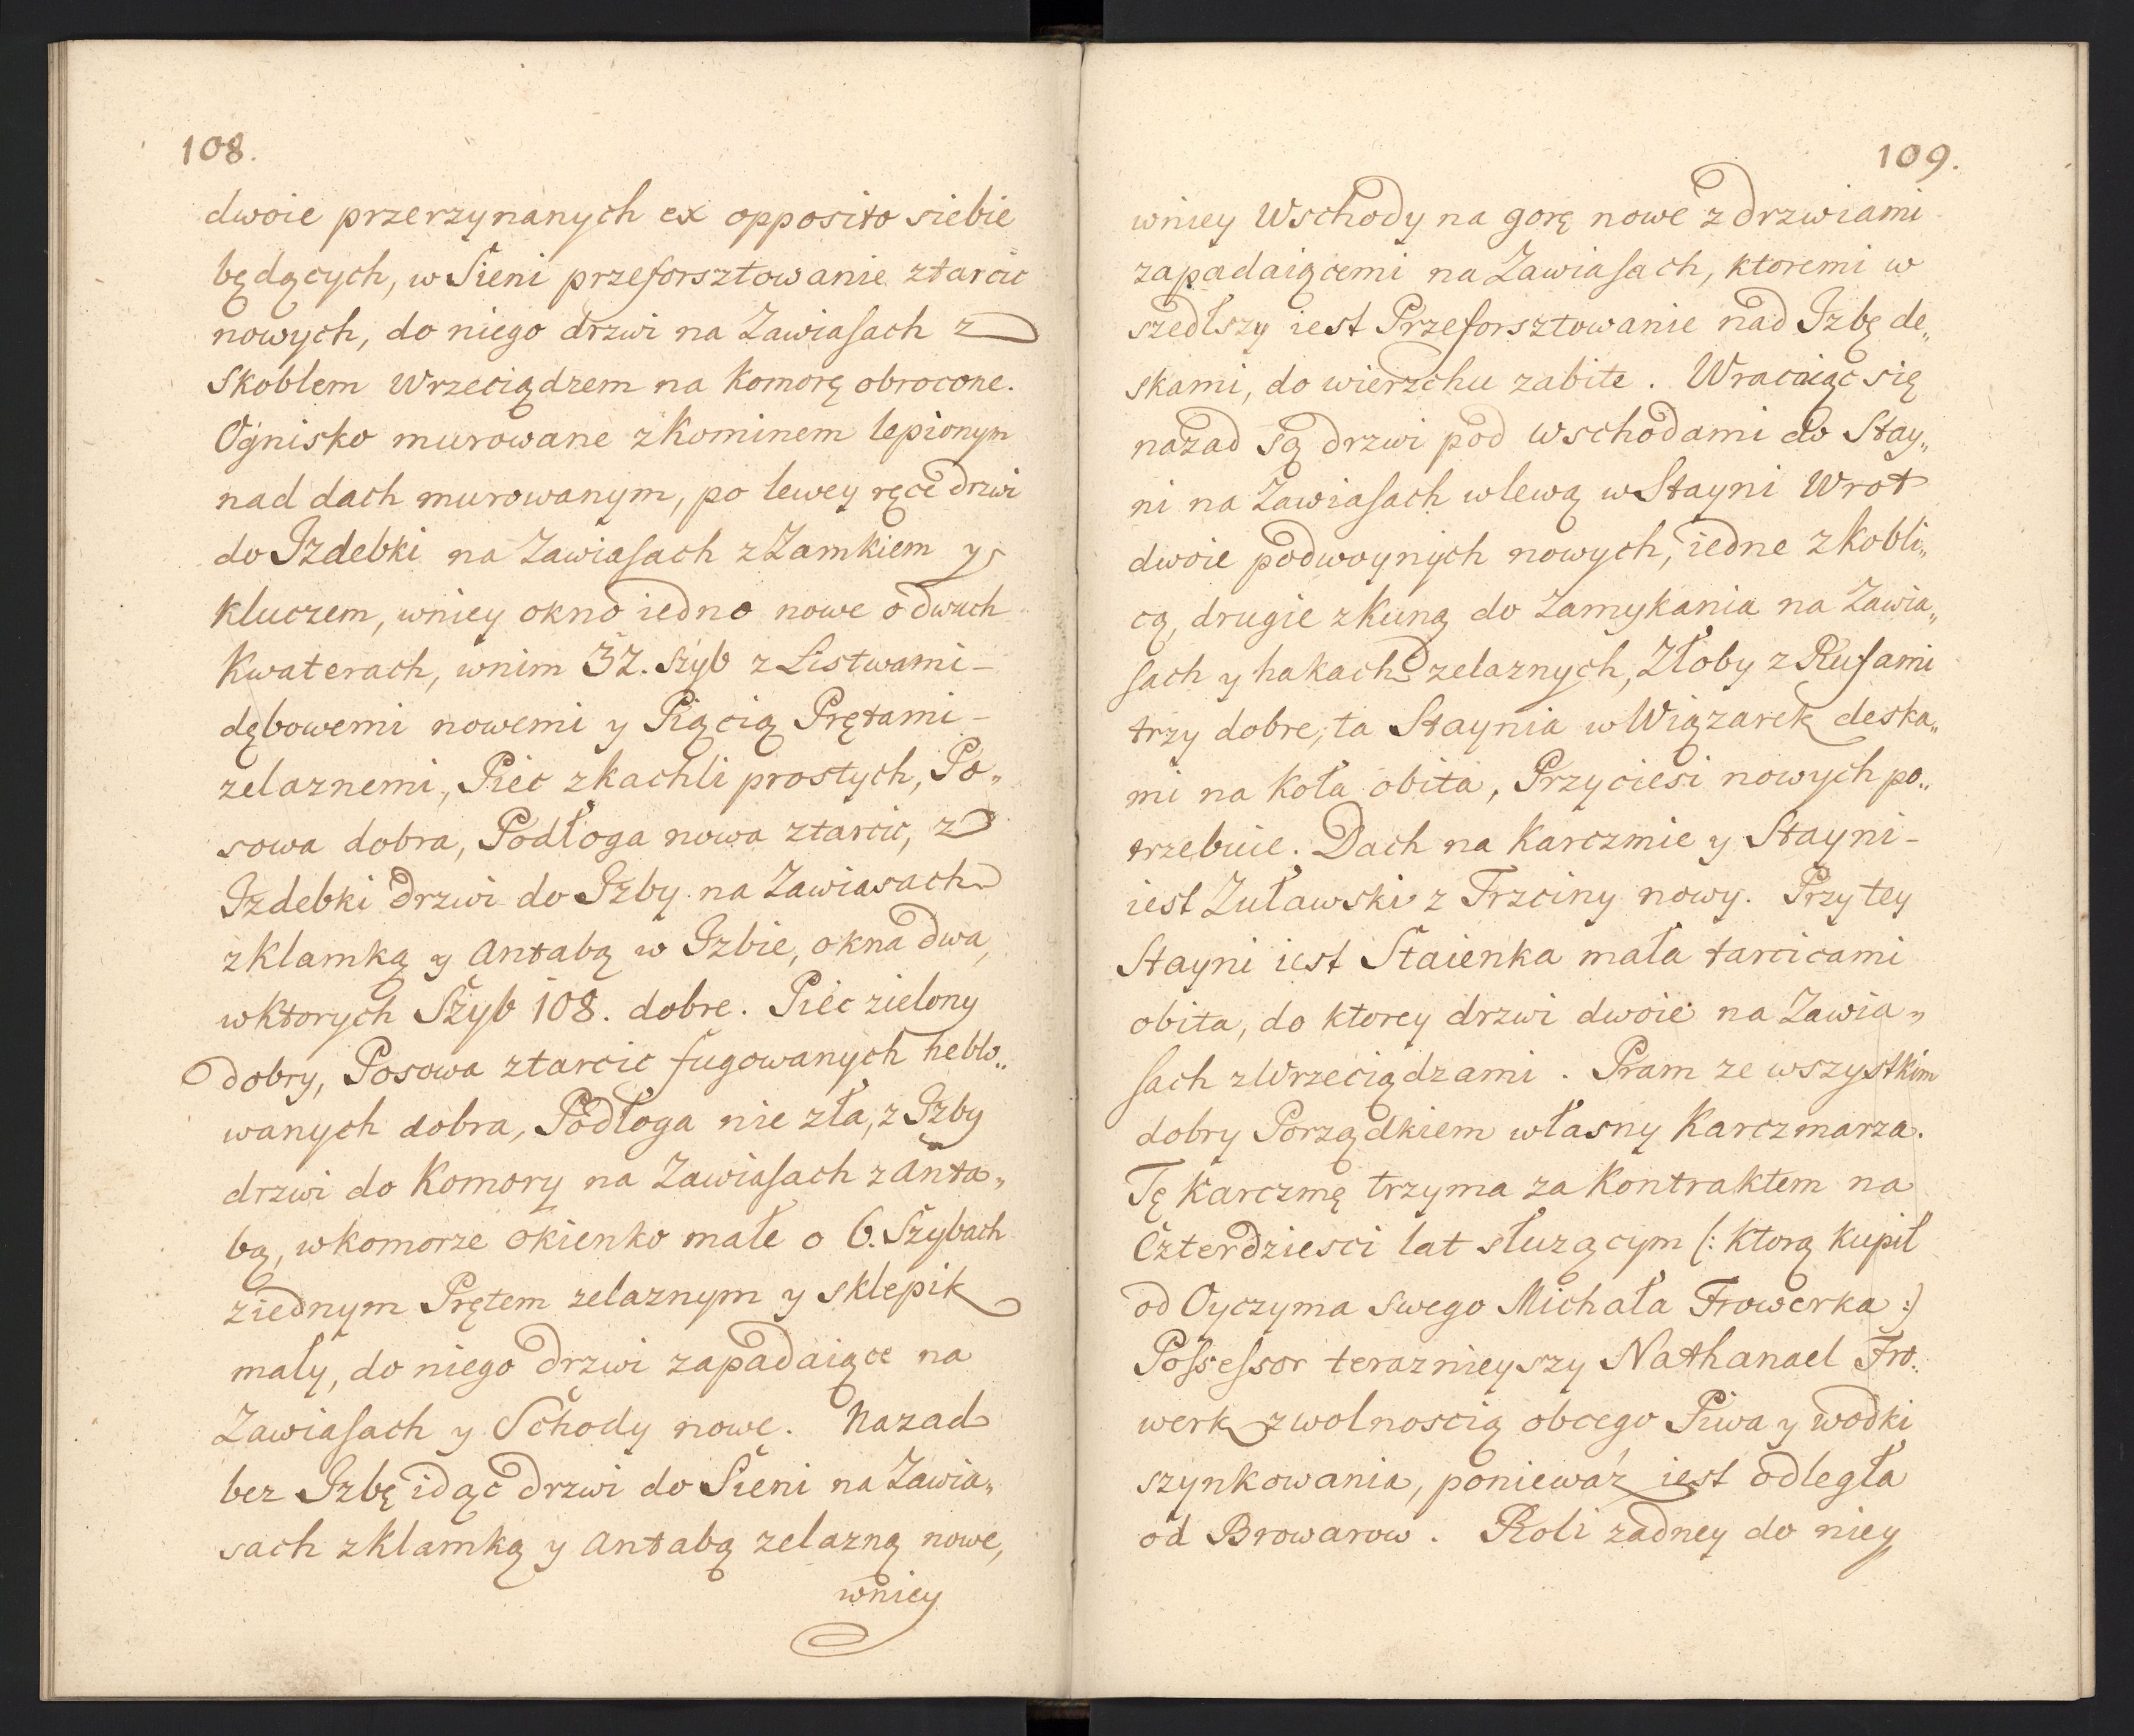 108.
dwoie przerzynanych ex opposito siebie
będących, w Sieni przeforsztowanie ztarcic
nowych, do niego drzwi na Zawiasach z
Skoblem Wrzeciądzem na Komorę obrocone.
Ognisko murowane z Kominem lepionym
nad dach murowanym, po lewey ręce drzwi
do Izdebki na Zawiasach z Zamkiem y
Kluczem, wniey okno iedno nowe o dwuch
Kwaterach, wnim 32. Szyb z Listwami –
dębowemi nowemi y Piącią Prętami –
zelaznemi, Piec z kachli prostych, Po„
sowa dobra, Podłoga nowa ztarcic, z
Izdebki drzwi do Izby na Zawiasach
z Klamką y Antabą w Izbie, okna dwa,
wktorych Szyb 108. dobre. Piec zielony
dobry, Posowa ztarcic fugowanych heblo„
wanych dobra, Podłoga nie zła, z Izby
drzwi do Komory na Zawiasach z anta„
bą, wkomorze okienko małe o 6. Szybach
ziednym Prętem zelaznym y sklepik
mały, do niego drzwi zapadaiące na
Zawiasach y Schody nowe. Nazad
bez Izbę idąc drzwi do Sieni na Zawia„
sach z Klamką y Antabą zelazną nowe,
wniey
109.
wniey Wschody na gorę nowe z drzwiami
zapadaiącemi na Zawiasach, ktoremi w
szedłszy iest Przeforsztowanie nad Izbę de„
skami, do wierzchu zabite. Wracaiąc się
nazad są drzwi pod Wschodami do Stay„
ni na Zawiasach wlewą w Stayni Wrot
dwoie podwoynych nowych, iedne z Kobli„
cą, drugie z Kuną do Zamykania na Zawia„
sach y hakach zelaznych, Złoby z Rufami
trzy dobre, ta Staynia w Wiązarek deska„
mi na Koła obita, Przyciesi nowych po„
trzebuie. Dach na Karczmie y Stayni –
iest Zuławski z Trzciny nowy. Przy tey
Stayni iest Staienka mała tarcicami
obita, do ktorey drzwi dwoie na Zawia„
sach z Wrzeciądzami. Pram ze wszystkim
dobry Porządkiem własny Karczmarza.
Tę Karczmę trzyma za Kontraktem na
Czterdziesci lat słuzącym (: ktorą kupił
od Oyczyma swego Michała Frowerka :)
Possessor teraznieyszy Nathanael Fro„
werk z wolnoscią obcego Piwa y wodki
szynkowania, poniewáz iest odległa
od Browarow. Roli zadney do niey